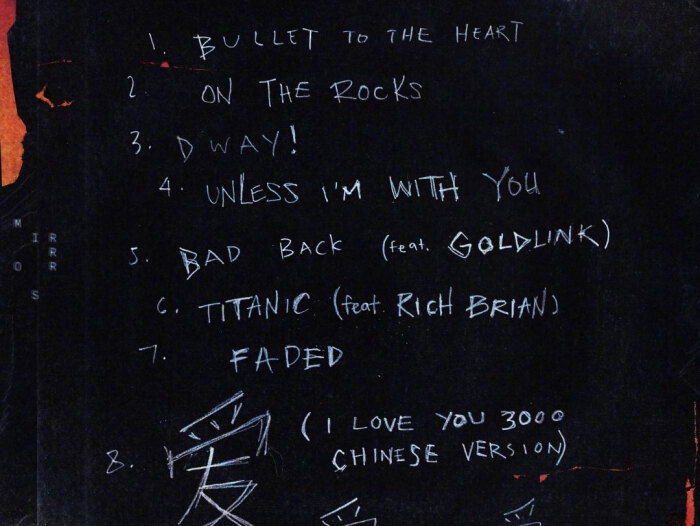 1. BULLET TO THE HEART
2. ON THE ROCKS
3. DWAY!
4. UNLESS I'M WITH YOU
M
I R
R
O R
S
5. BAD BACK (feat. GOLDLINK)
6. TITANIC (feat. RICH BRIAN)
7. FADED
8. 爱 (I LOVE YOU 3000
CHINESE VERSION)